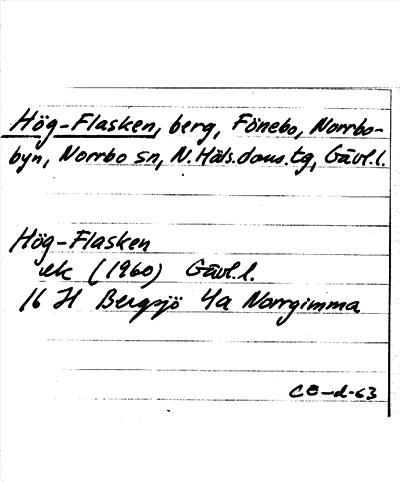 Hög-Flasken, berg, Fönebo, Norrbo-
byn, Norrbo sn, N. Häls. doms. tg, Gävl.l.
Hög-Flasken
ek (1960) Gävl.l.
16 H Bergsjö 4a Norrgimma
CE-d-63